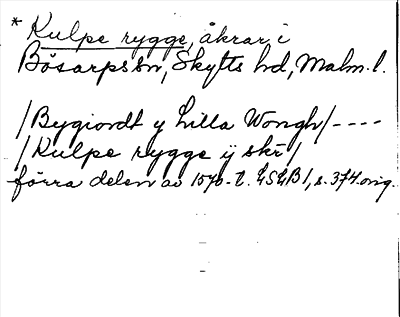 * Kulpe rygge, åkrar i
Bösarps sn, Skytts hd, Malm. l.
/Bygiordt y Lilla Wongh/ ----
/Kulpe rygge ÿ skr/
förra delen av 1570-t. LSGB 1, s. 374. orig.